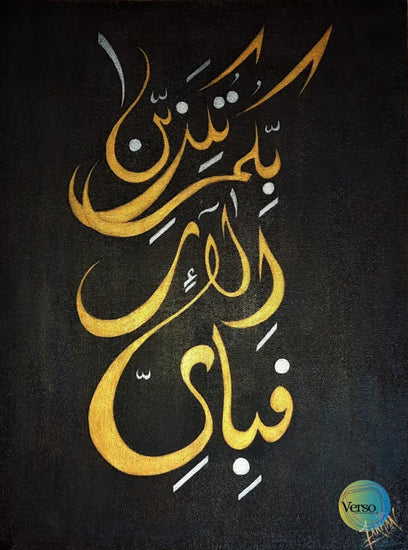 فبِايِّ
اٰلاءِ
ربِّكما
تُكَذِّبٰن
Verso